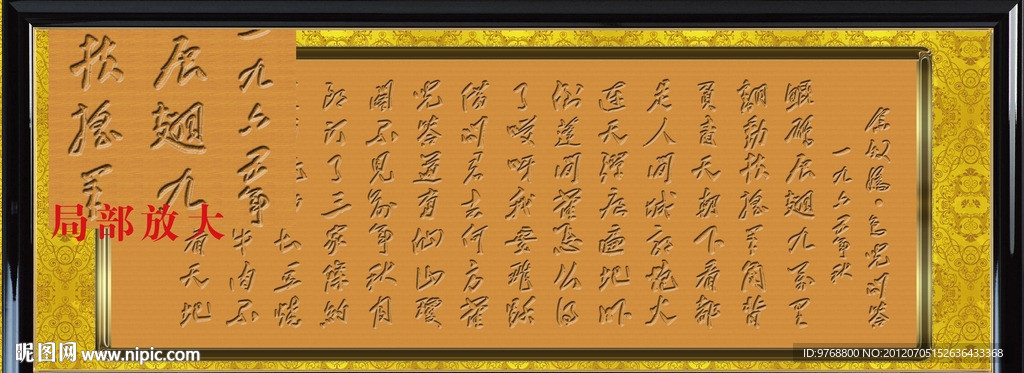 念奴娇·鸟儿问答
一九六五年秋
鲲鹏展翅九万里
翻动扶摇羊角背
负青天朝下看都
是人间城郭炮火
连天弹痕遍地吓
倒蓬间雀怎么得
了哎呀我要飞跃
借问君去何方雀
儿答道有仙山琼
阁不见前年秋月
朗订了三家条约
土豆烧
牛肉不
看天地
一九六五年
展翅九
扶摇羊
局部放大
昵图网 www.nipic.com
ID:9768800 NO:20120705152636433368